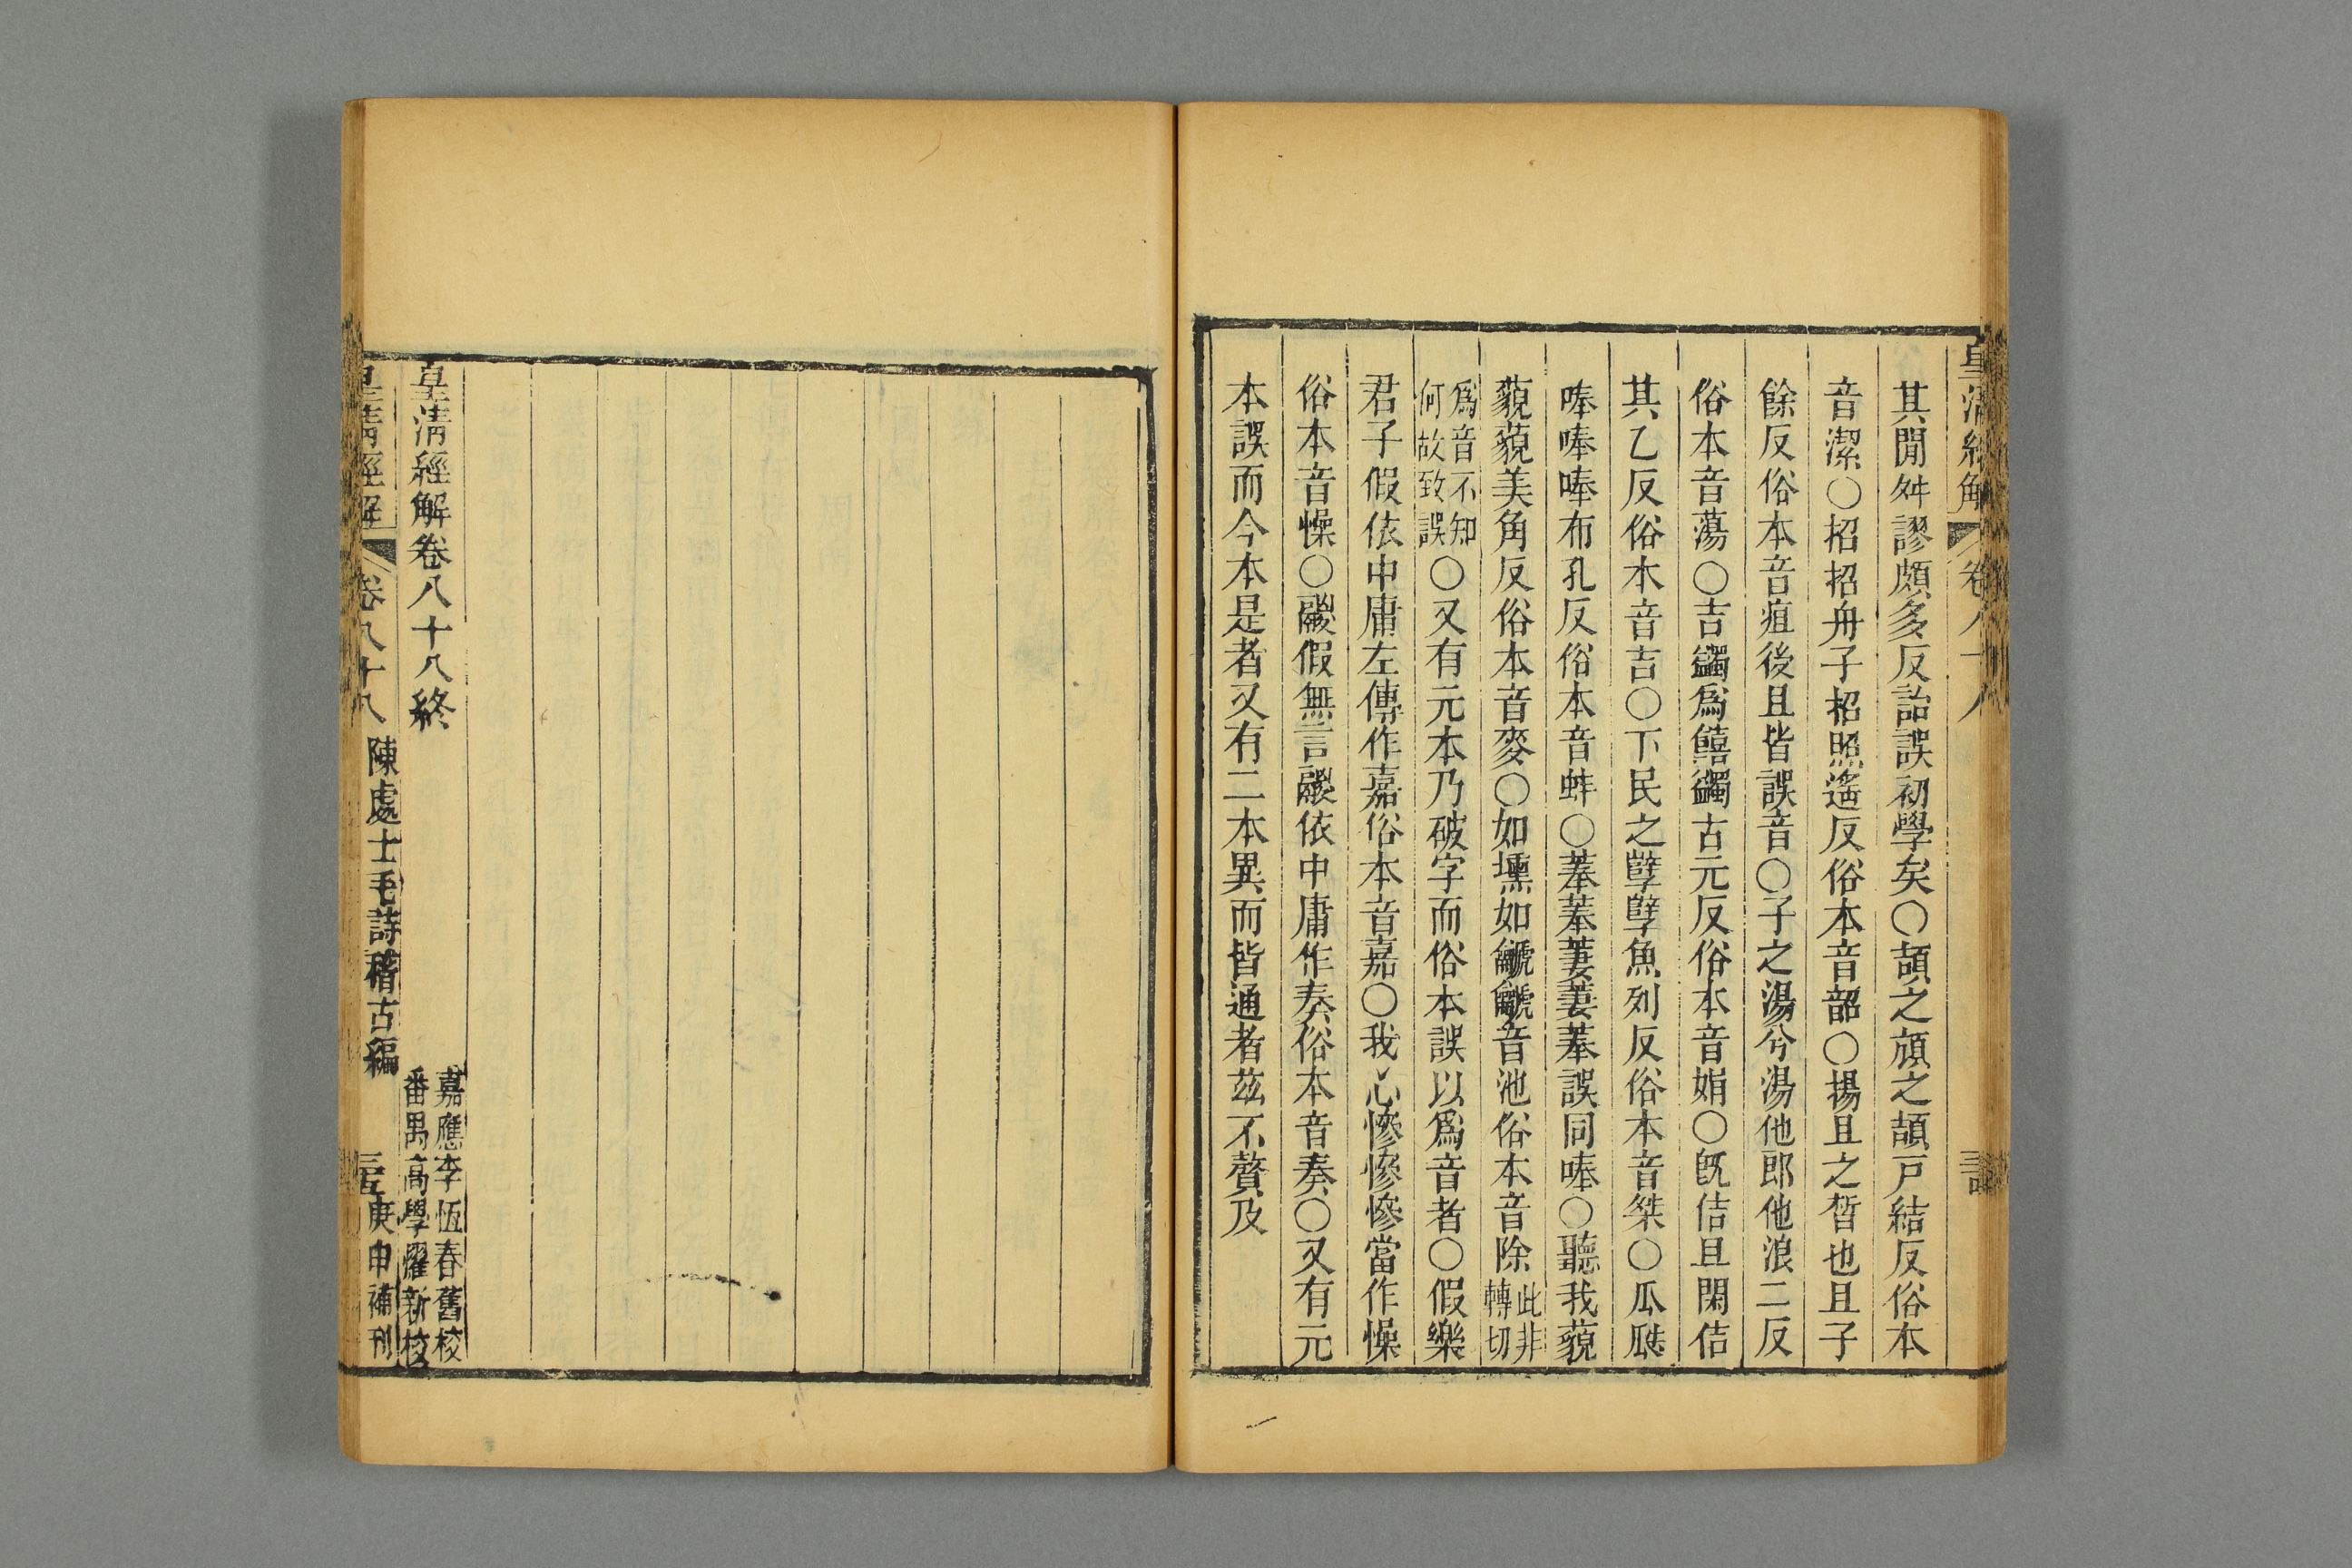 皇清經解 卷八十八
其閒舛謬頗多反詒誤初學矣○頡之頏之頡戸結反俗本
音潔○招招舟子招照遙反俗本音韶○揚且之晳也且子
餘反俗本音疽後且皆誤音○子之湯兮湯他郎他浪二反
俗本音蕩○吉蠲爲饎蠲古元反俗本音娟○旣佶且閑佶
其乙反俗本音吉○下民之孼孼魚列反俗本音桀○瓜瓞
唪唪唪布孔反俗本音蚌○菶菶萋萋菶誤同唪○聽我藐
藐藐美角反俗本音麥○如壎如篪篪音池俗本音除此非轉切
爲音不知何故致誤○又有元本乃破字而俗本誤以爲音者○假樂
君子假依中庸左傳作嘉俗本音嘉○我心慘慘慘當作懆
俗本音懆○鬷假無言鬷依中庸作奏俗本音奏○又有元
本誤而今本是者又有二本異而皆通者茲不贅及
皇清經解卷八十八終
嘉應李恆春舊校
番禺高學燿新校
皇清經解 卷八十八 陳處士毛詩稽古編 庚申補刊